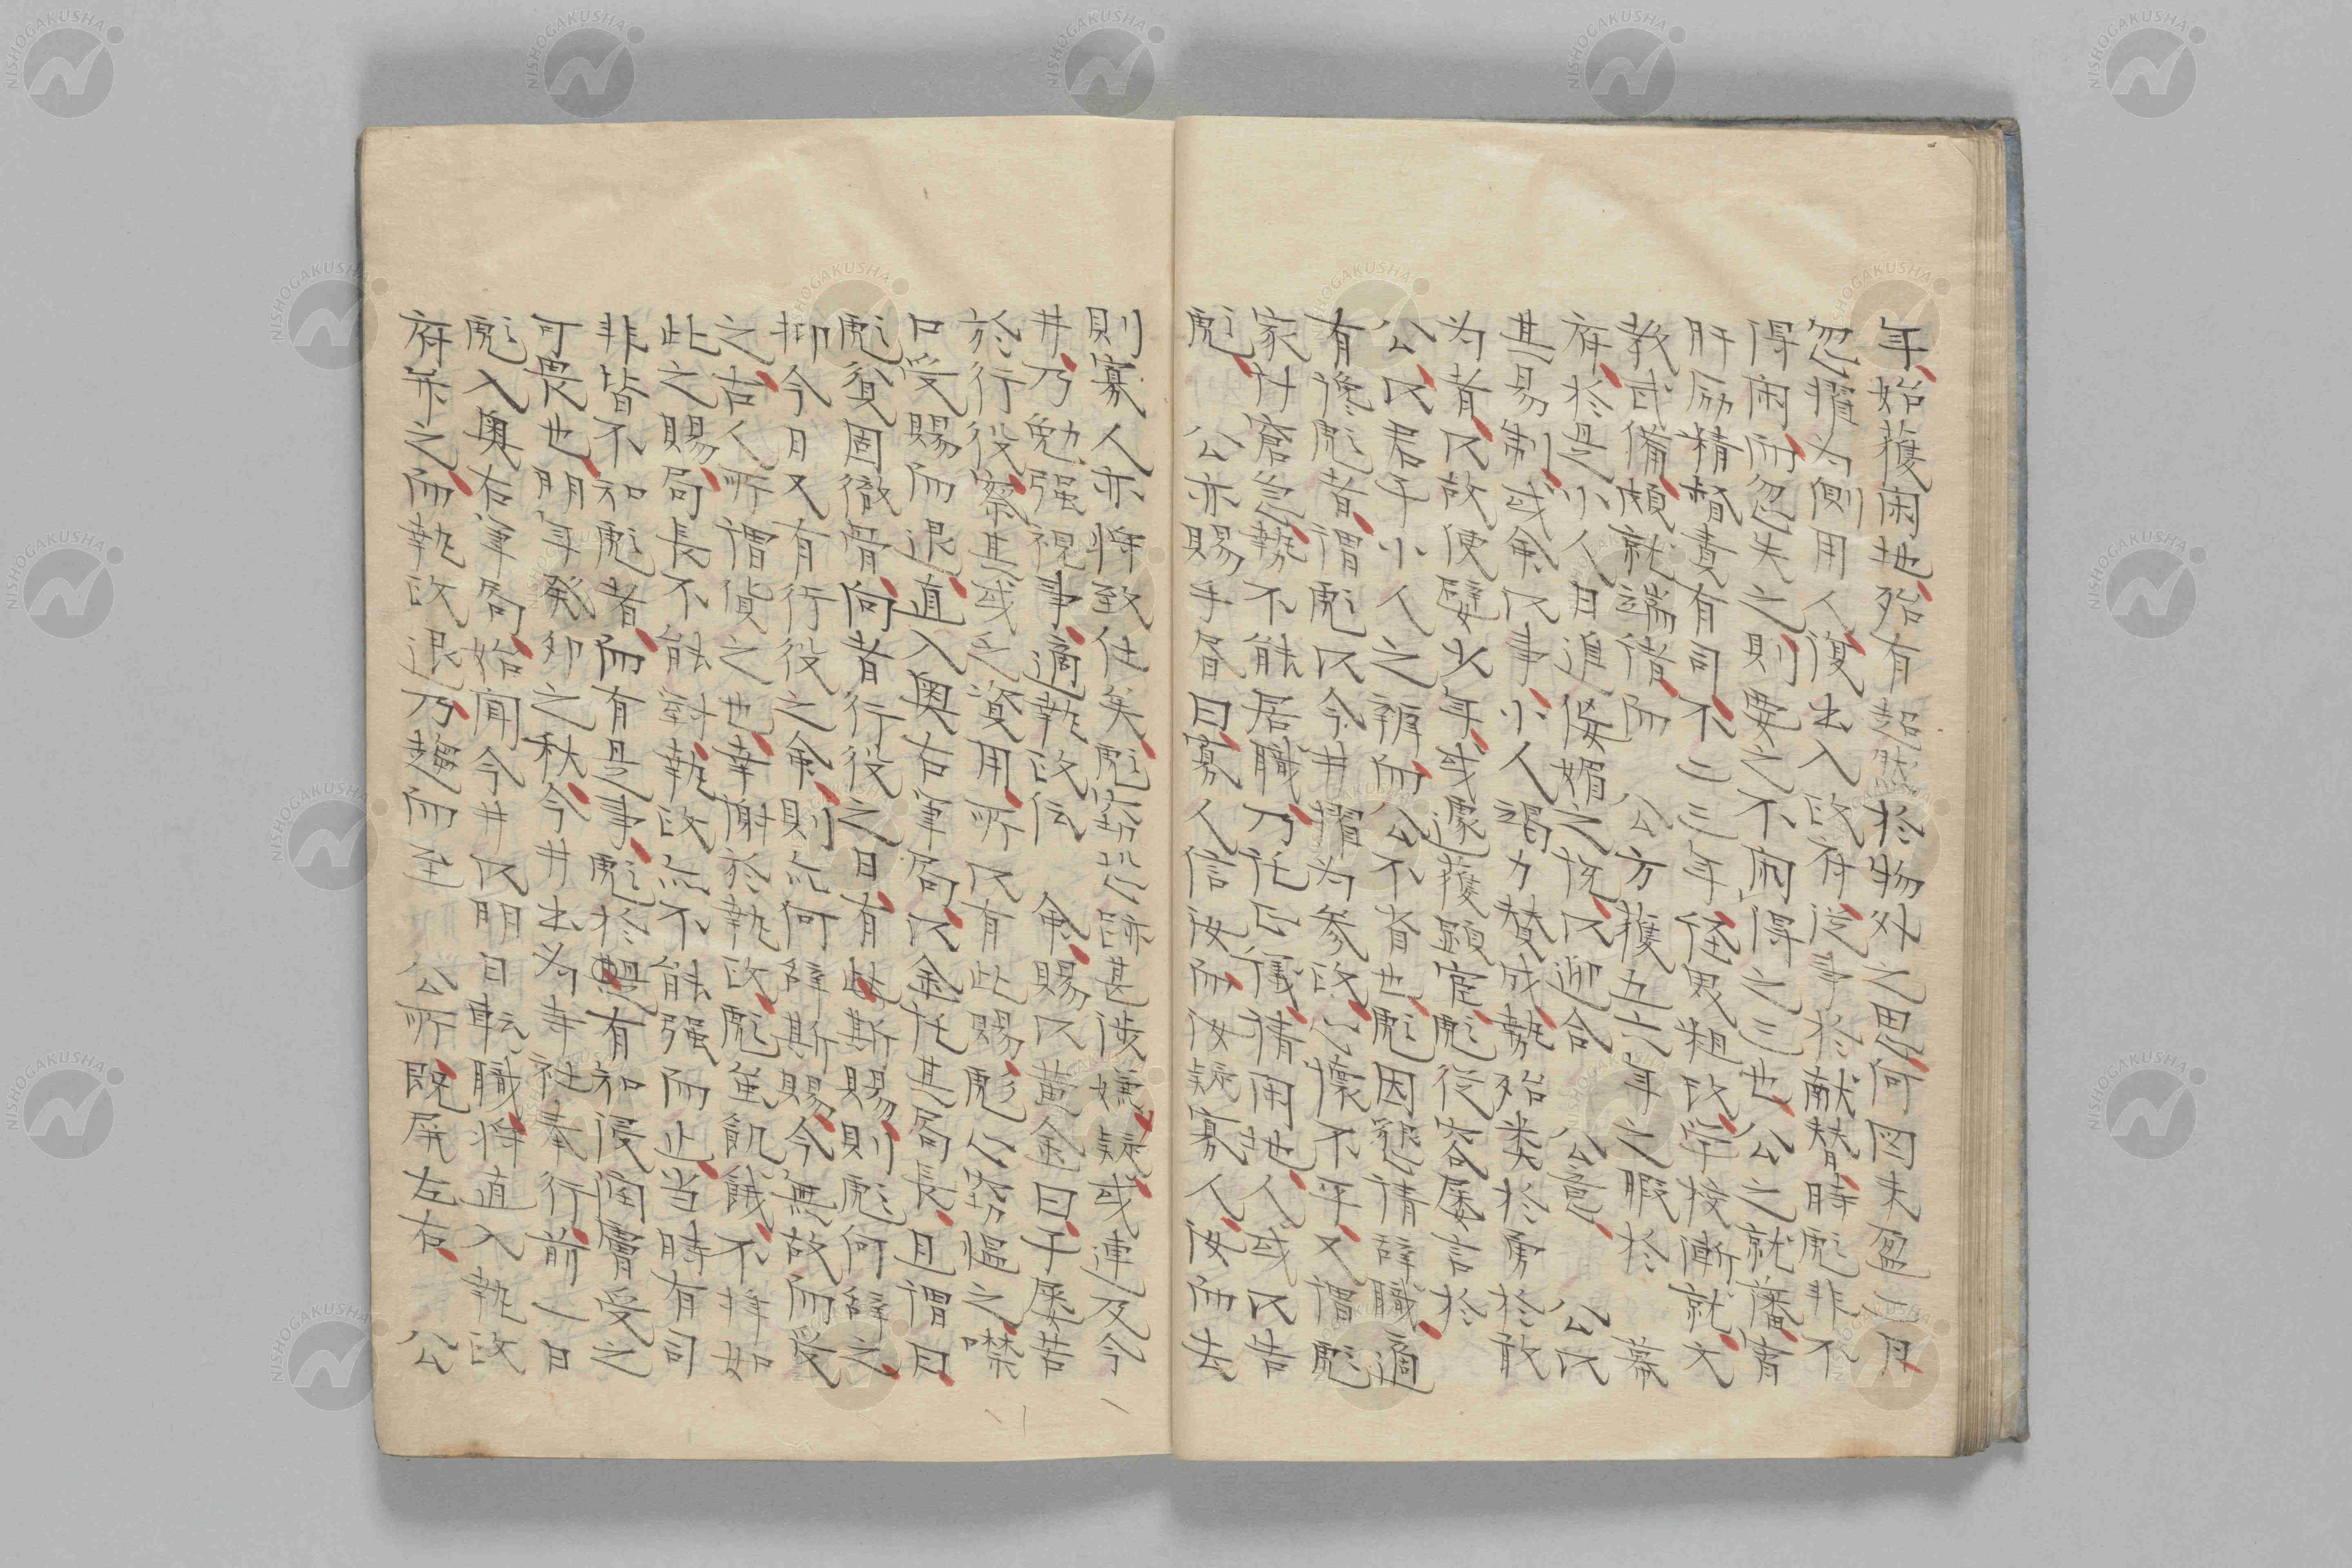 年始獲閑地殆有超然於物外之思何図未盈二月
忽擢為側用人復出入政府從事於献替時彪非不
得閑而忽失之則要之不閑得之三也公之就藩宵
肝励精督責有司不二三年怪異粗政学校漸就文
教武備頗就端緒而　公方獲五六年之暇於　幕
府於是小人日進佞媚之悦以迎合　公意　公以
其易制或命以事小人竭力賛成勢殆類於勇於敢
為者以故便嬖少年或遽獲顕宦彪從容屡言於
公以君子小人之辨而公不省也彪因懇請辞職適
有讒彪者謂彪以今井擢為参政心懐不平又謂彪
家計窘急勢不能居職乃托正議猜閑地人或以告
彪　公亦賜手書曰寡人信汝而汝疑寡人汝而去
則寡人亦将致仕矣彪窃恐跡甚渉嫌疑或連及今
井乃勉强視事適執政伝　命賜以黄金曰于屡苦
於行役察其或乏資用所以有此賜彪心窃慍之噤
口受賜而退直入奥右筆局以金托其局長且謂曰
彪貧固徹骨向者行役之日有此斯賜則彪何辞之
抑今日又有行役之命則亦何辞斯賜今無故而受
之古人所謂貨之也幸謝於執政彪隹飢餓不拝如
此之賜局長不能對執政亦不能强而止当時有司
非皆不和彪者而有是事彪於是有和浸潤膚受之
可畏也明年癸卯之秋今井出為寺社奉行前一日
彪入奥右筆局始聞今井以明日転職将直入執政
府弁之而執政退乃趨而至　公所既屏左右　公